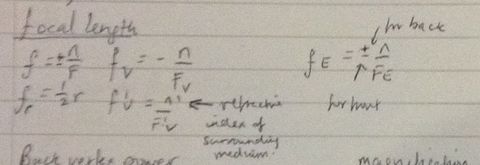 focal length
for back
f = ± n/F   fv = - n/Fv   fE = ± n/FE
fr = ½ r   f'v = n'/F'v ← refractive index of surrounding medium.
for front
Back vertex power
magnification